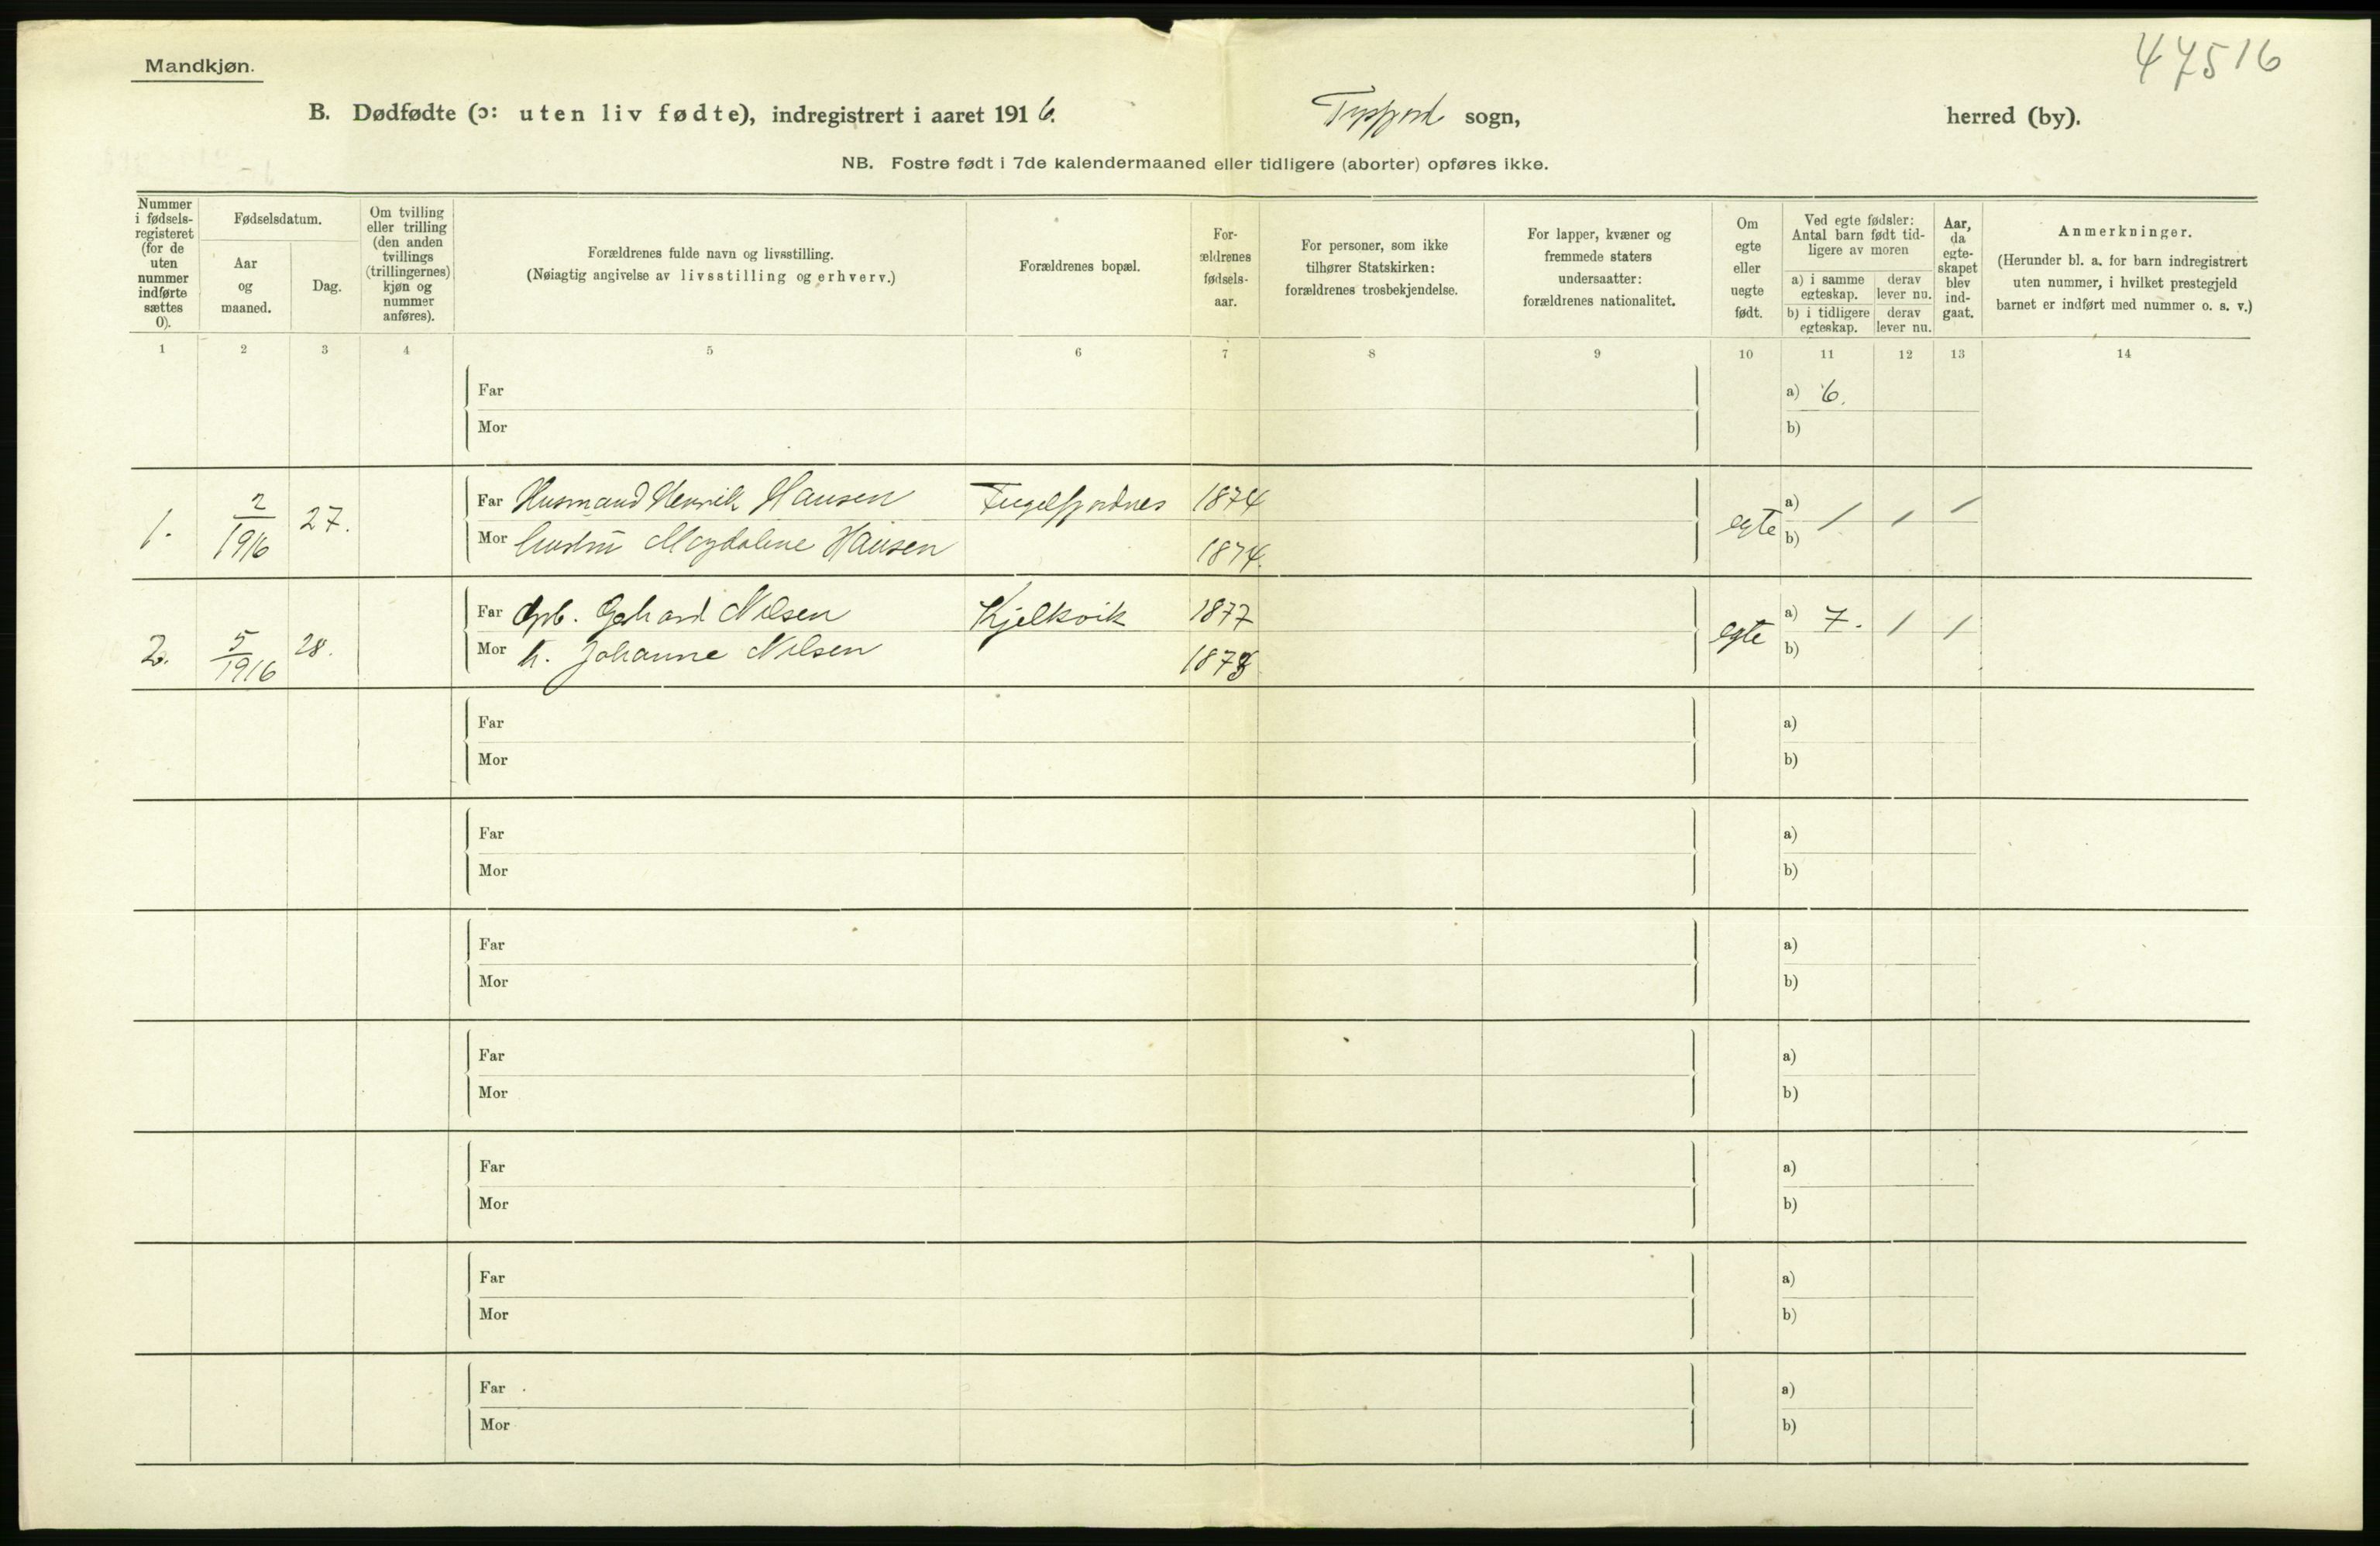 Mandkjøn.
47516
B. Dødfødte (ɔ: uten liv fødte), indregistrert i aaret 1916. Tysfjord sogn, herred (by).
NB. Fostre født i 7de kalendermaaned eller tidligere (aborter) opføres ikke.
Nummer i fødsels-registeret (for de uten nummer indførte sættes 0).
Fødselsdatum.
Aar og maaned.
Dag.
Om tvilling eller trilling (den anden tvillings (trillingernes) kjøn og nummer anføres).
Forældrenes fulde navn og livsstilling.
(Nøiagtig angivelse av livsstilling og erhverv.)
Forældrenes bopæl.
For-ældrenes fødsels-aar.
For personer, som ikke tilhører Statskirken: forældrenes trosbekjendelse.
For lapper, kvæner og fremmede staters undersaatter: forældrenes nationalitet.
Om egte eller uegte født.
Ved egte fødsler: Antal barn født tid-ligere av moren
a) i samme egteskap. derav lever nu.
b) i tidligere egteskap. derav lever nu.
Aar, da egte-skapet blev ind-gaat.
Anmerkninger.
(Herunder bl. a. for barn indregistrert uten nummer, i hvilket prestegjeld barnet er indført med nummer o. s. v.)
1 2 3 4 5 6 7 8 9 10 11 12 13 14
Far a) 6.
Mor b)
1. 2/1916 27. Far Husmand Henrik Hansen 1874 egte a) / / /
Mor hustru Magdalene Hansen 1874. b)
2. 5/1916 28. Far Gerhard Nilsen Kjelkvik 1877 egte a) 7. / /
Mor h. Johanne Nilsen 1878 b)
Far a)
Mor b)
Far a)
Mor b)
Far a)
Mor b)
Far a)
Mor b)
Far a)
Mor b)
Far a)
Mor b)
Far a)
Mor b)